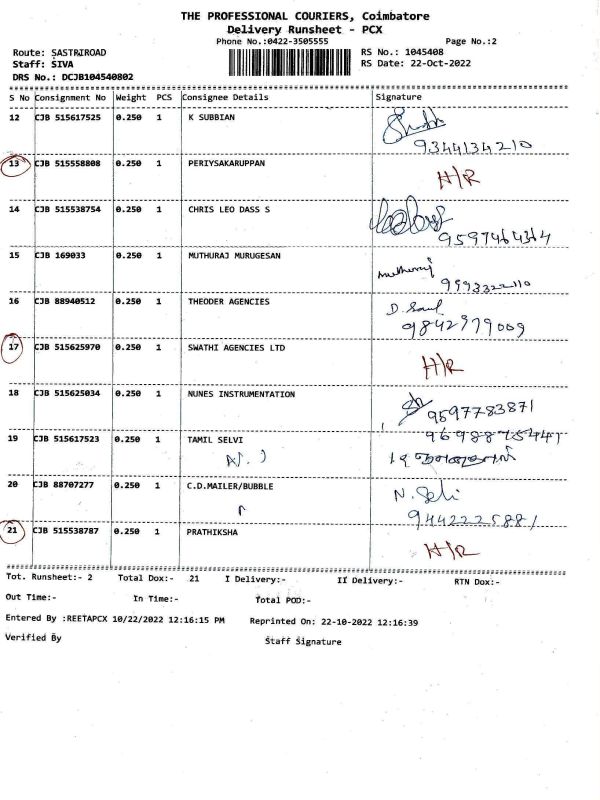 THE PROFESSIONAL COURIERS, Coimbatore
Delivery Runsheet - PCX
Phone No.:0422-3505555 Page No.:2
Route: SASTRIROAD RS No.: 1045408
Staff: SIVA RS Date: 22-Oct-2022
DRS No.: DCJB104540802
S No Consignment No Weight PCS Consignee Details Signature
12 CJB 515617525 0.250 1 K SUBBIAN
9344134210
13 CJB 515558808 0.250 1 PERIYSAKARUPPAN
H/R
14 CJB 515538754 0.250 1 CHRIS LEO DASS S
9597464364
15 CJB 169033 0.250 1 MUTHURAJ MURUGESAN
Muthuraj
9993322110
16 CJB 88940512 0.250 1 THEODER AGENCIES
9842979009
17 CJB 515625970 0.250 1 SWATHI AGENCIES LTD
H/R
18 CJB 515625034 0.250 1 NUNES INSTRUMENTATION
9597783871
19 CJB 515617523 0.250 1 TAMIL SELVI
9698875441
20 CJB 88707277 0.250 1 C.D.MAILER/BUBBLE
21 CJB 515538787 0.250 1 PRATHIKSHA
H/R
Tot. Runsheet:- 2 Total Dox:- 21 I Delivery:- II Delivery:- RTN Dox:-
Out Time:- In Time:- Total POD:-
Entered By :REETAPCX 10/22/2022 12:16:15 PM Reprinted On: 22-10-2022 12:16:39
Verified By Staff Signature